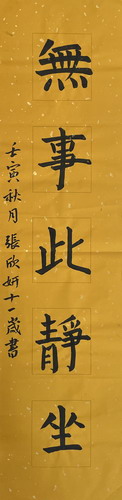 無事此靜坐
壬寅秋月張欣妍十一歲書